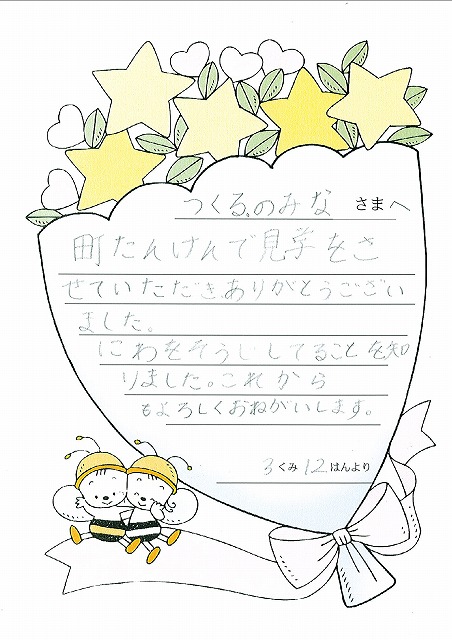 つくる.のみな さまへ
町たんけんで見学をさ
せていただきありがとうござい
ました。
にわをそうじしてることを知
りました。これから
もよろしくおねがいします。
3くみ12はんより